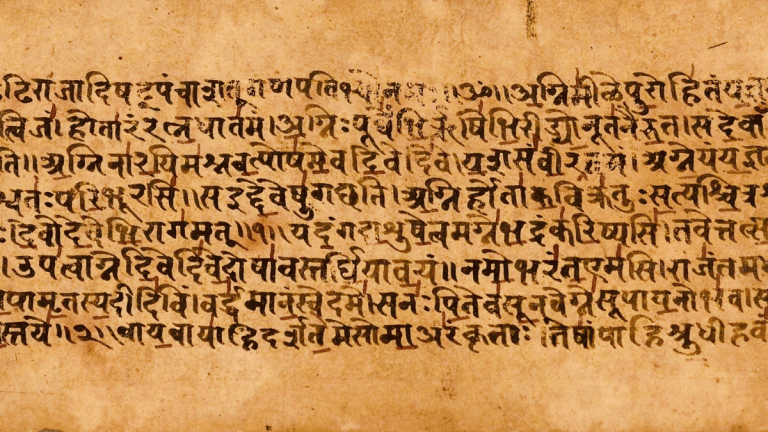 ॐ॥ अग्निमीळेपुरोहितंयज्ञ
त्विजं।होतारंरत्नधातमं।अग्निःपूर्वेभिर्ऋषिभिरीड्योनूतनैरुत।सदेवाँ
ति॥अग्निनारयिमश्नवत्पोषमेवदिवेदिवे।यशसंवीरवत्तमं।अग्नेयंयज्ञ
श्वतःपरिभूरसि।सइद्देवेषुगच्छति।अग्निर्होताकविक्रतुःसत्यश्चित्रश्र
।देवोदेवेभिरागमत्॥१॥यदंगदाशुषेत्वमग्नेभद्रंकरिष्यसि।तवेत्तत्स
।उपत्वाग्नेदिवेदिवेदोषावस्तर्धियावयं॥नमोभरंतएमसि।राजंतमध्व
पामृतस्यदीदिविं।वर्द्धमानंस्वेदमे।सनःपितेवसूनवेग्नेसूपायनोभव।स
स्तये॥२॥वायवायाहिदर्शतेमेसोमाअरंकृताः।तेषांपाहिश्रुधीहवं